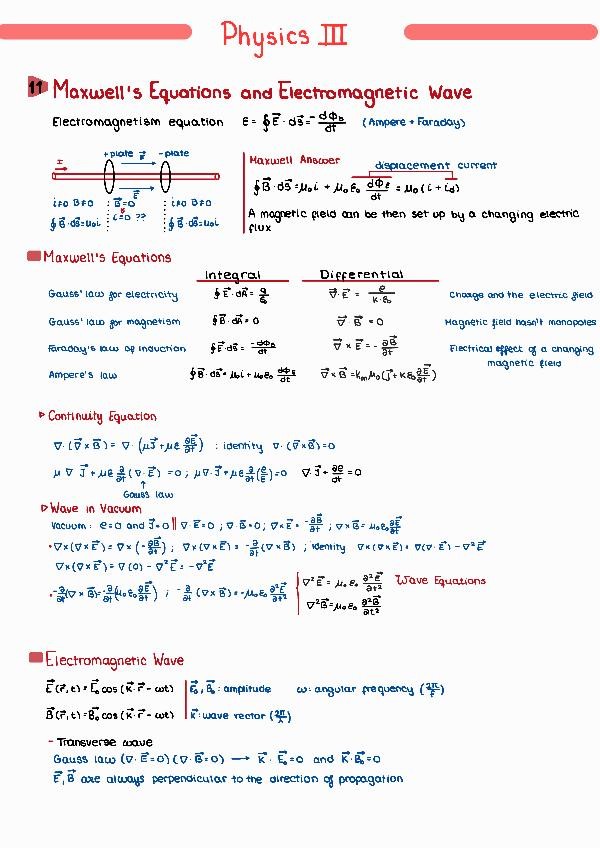 Physics III
11 Maxwell's Equations and Electromagnetic Wave
Electromagnetism equation E = ∮ E⃗ · ds⃗ = -dΦb/dt (Ampere + Faraday)
+plate E⃗ -plate
Maxwell Answer
displacement current
∮ B⃗ · ds⃗ = μ₀i + μ₀ε₀ dΦE/dt = μ₀ (i + id)
i≠0 B≠0 B⃗=0 i≠0 B≠0
∮ B⃗·ds⃗=μ₀i i=0 ?? ∮ B⃗·ds⃗=μ₀i
A magnetic field can be then set up by a changing electric
flux
Maxwell's Equations
Integral Differential
Gauss' law for electricity ∮ E⃗·dA⃗ = q/ε₀ ∇⃗·E⃗ = ρ/K·ε₀ Charge and the electric field
Gauss' law for magnetism ∮ B⃗·dA⃗ = 0 ∇⃗ B⃗ = 0 Magnetic field hasn't monopoles
Faraday's law of induction ∮ E⃗·ds⃗ = -dΦb/dt ∇⃗ × E⃗ = -∂B⃗/∂t Electrical effect of a changing
magnetic field
Ampere's law ∮ B⃗·ds⃗ = μ₀i + μ₀ε₀ dΦE/dt ∇⃗ × B⃗ = kmμ₀(J⃗ + Kε₀ ∂E⃗/∂t)
Continuity Equation
∇·(∇×B⃗) = ∇·(μJ⃗ + με ∂E⃗/∂t) : identity ∇·(∇×B)=0
μ ∇ J⃗ + με ∂/∂t (∇·E⃗) = 0 ; μ∇·J⃗ + με ∂/∂t (ρ/ε) = 0 ∇·J⃗ + ∂ρ/∂t = 0
↑
Gauss law
Wave in Vacuum
Vacuum : ρ=0 and J⃗=0 ∇·E⃗=0 ; ∇·B⃗=0 ; ∇×E⃗ = -∂B⃗/∂t ; ∇×B⃗ = μ₀ε₀ ∂E⃗/∂t
∇×(∇×E⃗) = ∇×(-∂B⃗/∂t) ; ∇×(∇×E⃗) = -∂/∂t (∇×B⃗) ; identity ∇×(∇×E⃗) = ∇(∇·E⃗) - ∇²E⃗
∇×(∇×E⃗) = ∇(0) - ∇²E⃗ = -∇²E⃗
-∂/∂t (∇×B⃗) = -∂/∂t (μ₀ε₀ ∂E⃗/∂t) ; -∂/∂t (∇×B⃗) = -μ₀ε₀ ∂²E⃗/∂t²
∇²E⃗ = μ₀ε₀ ∂²E⃗/∂t² Wave Equations
∇²B⃗ = μ₀ε₀ ∂²B⃗/∂t²
Electromagnetic Wave
E⃗(r⃗,t) = E⃗₀ cos (K⃗·r⃗ - ωt) E⃗₀, B⃗₀ : amplitude ω: angular frequency (2π/T)
B⃗(r⃗,t) = B⃗₀ cos (K⃗·r⃗ - ωt) K⃗: wave rector (2π/λ)
- Transverse wave
Gauss law (∇·E⃗=0)(∇·B⃗=0) → K⃗·E⃗₀=0 and K⃗·B₀=0
E⃗, B⃗ are always perpendicular to the direction of propagation